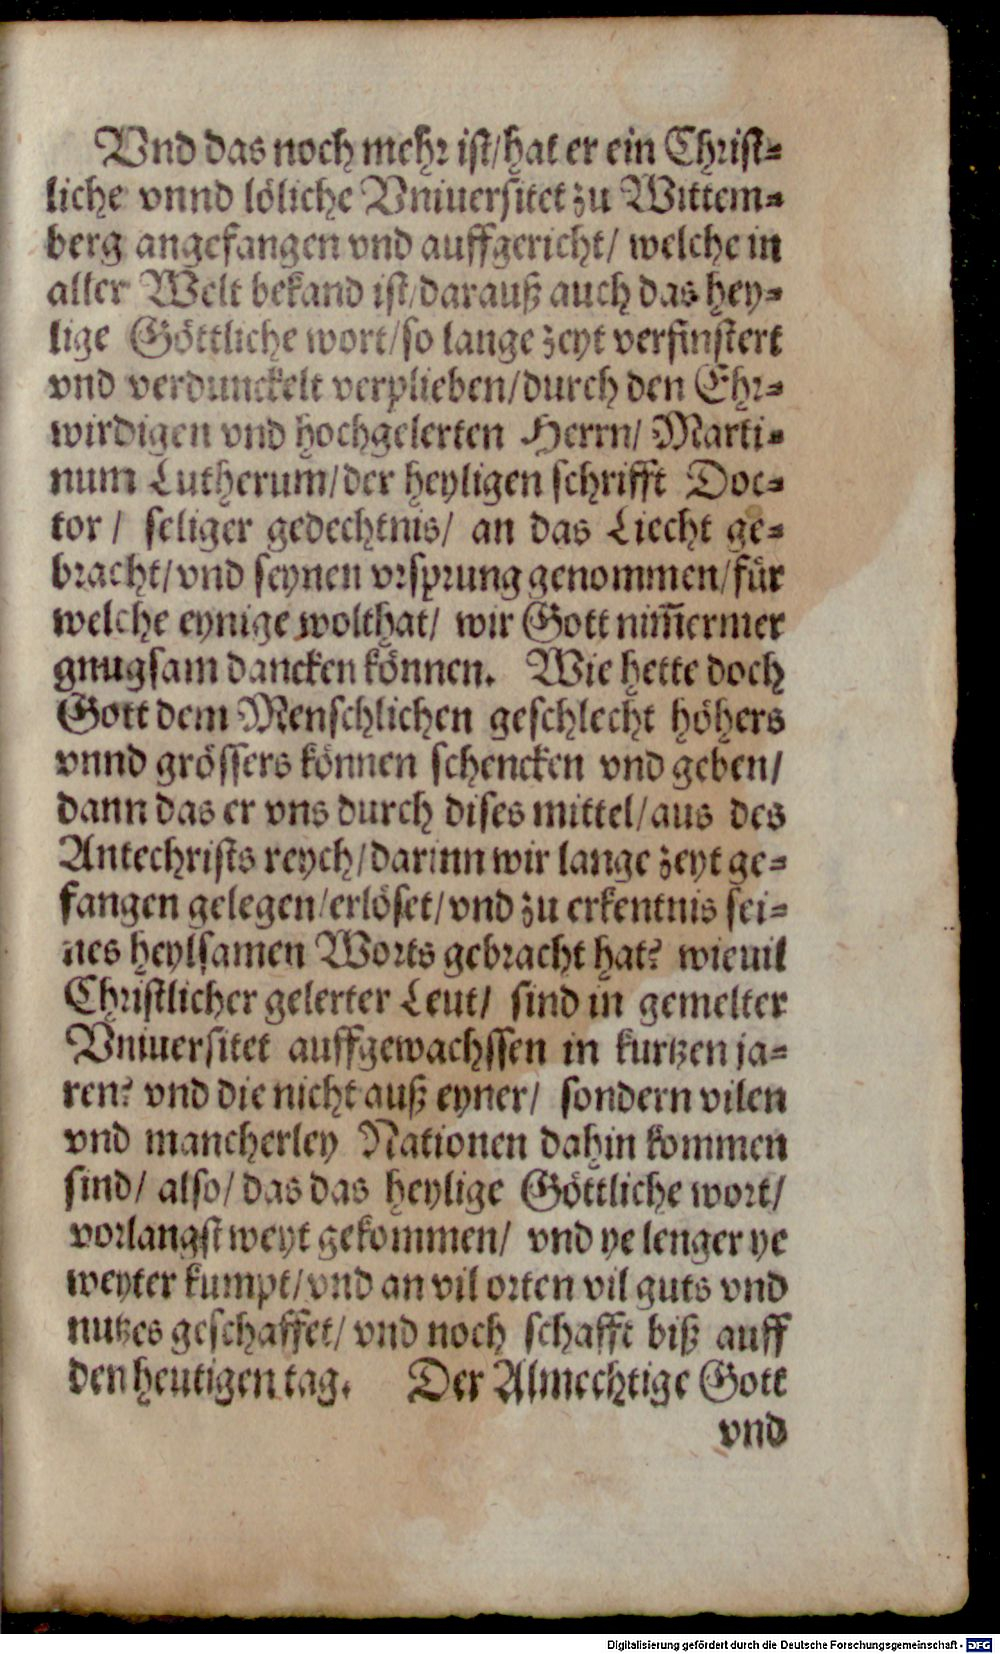 Vnd das noch mehr ist/hat er ein Christ-
liche vnnd löliche Vniuersitet zu Wittem-
berg angefangen vnd auffgericht/ welche in
aller Welt bekand ist/darauß auch das hey-
lige Göttliche wort/so lange zeyt verfinstert
vnd verdunckelt verplieben/durch den Ehr-
wirdigen vnd hochgelerten Herrn/ Marti-
num Lutherum/der heyligen schrifft Doc-
tor/ seliger gedechtnis/ an das Liecht ge-
bracht/vnd seynen vrsprung genommen/für
welche eynige wolthat/ wir Gott nim̃ermer
gnugsam dancken können. Wie hette doch
Gott dem Menschlichen geschlecht höhers
vnnd grössers können schencken vnd geben/
dann das er vns durch dises mittel/aus des
Antechrists reych/darinn wir lange zeyt ge-
fangen gelegen/erlöset/vnd zu erkentnis sei-
nes heylsamen Worts gebracht hat? wieuil
Christlicher gelerter Leut/ sind in gemelter
Vniuersitet auffgewachssen in kurtzen ja-
ren? vnd die nicht auß eyner/ sondern vilen
vnd mancherley Nationen dahin kommen
sind/ also/ das das heylige Göttliche wort/
vorlangst weyt gekommen/ vnd ye lenger ye
weyter kumpt/vnd an vil orten vil guts vnd
nutzes geschaffet/ vnd noch schafft biß auff
den heutigen tag. Der Almechtige Gott
vnd
Digitalisierung gefördert durch die Deutsche Forschungsgemeinschaft - DFG